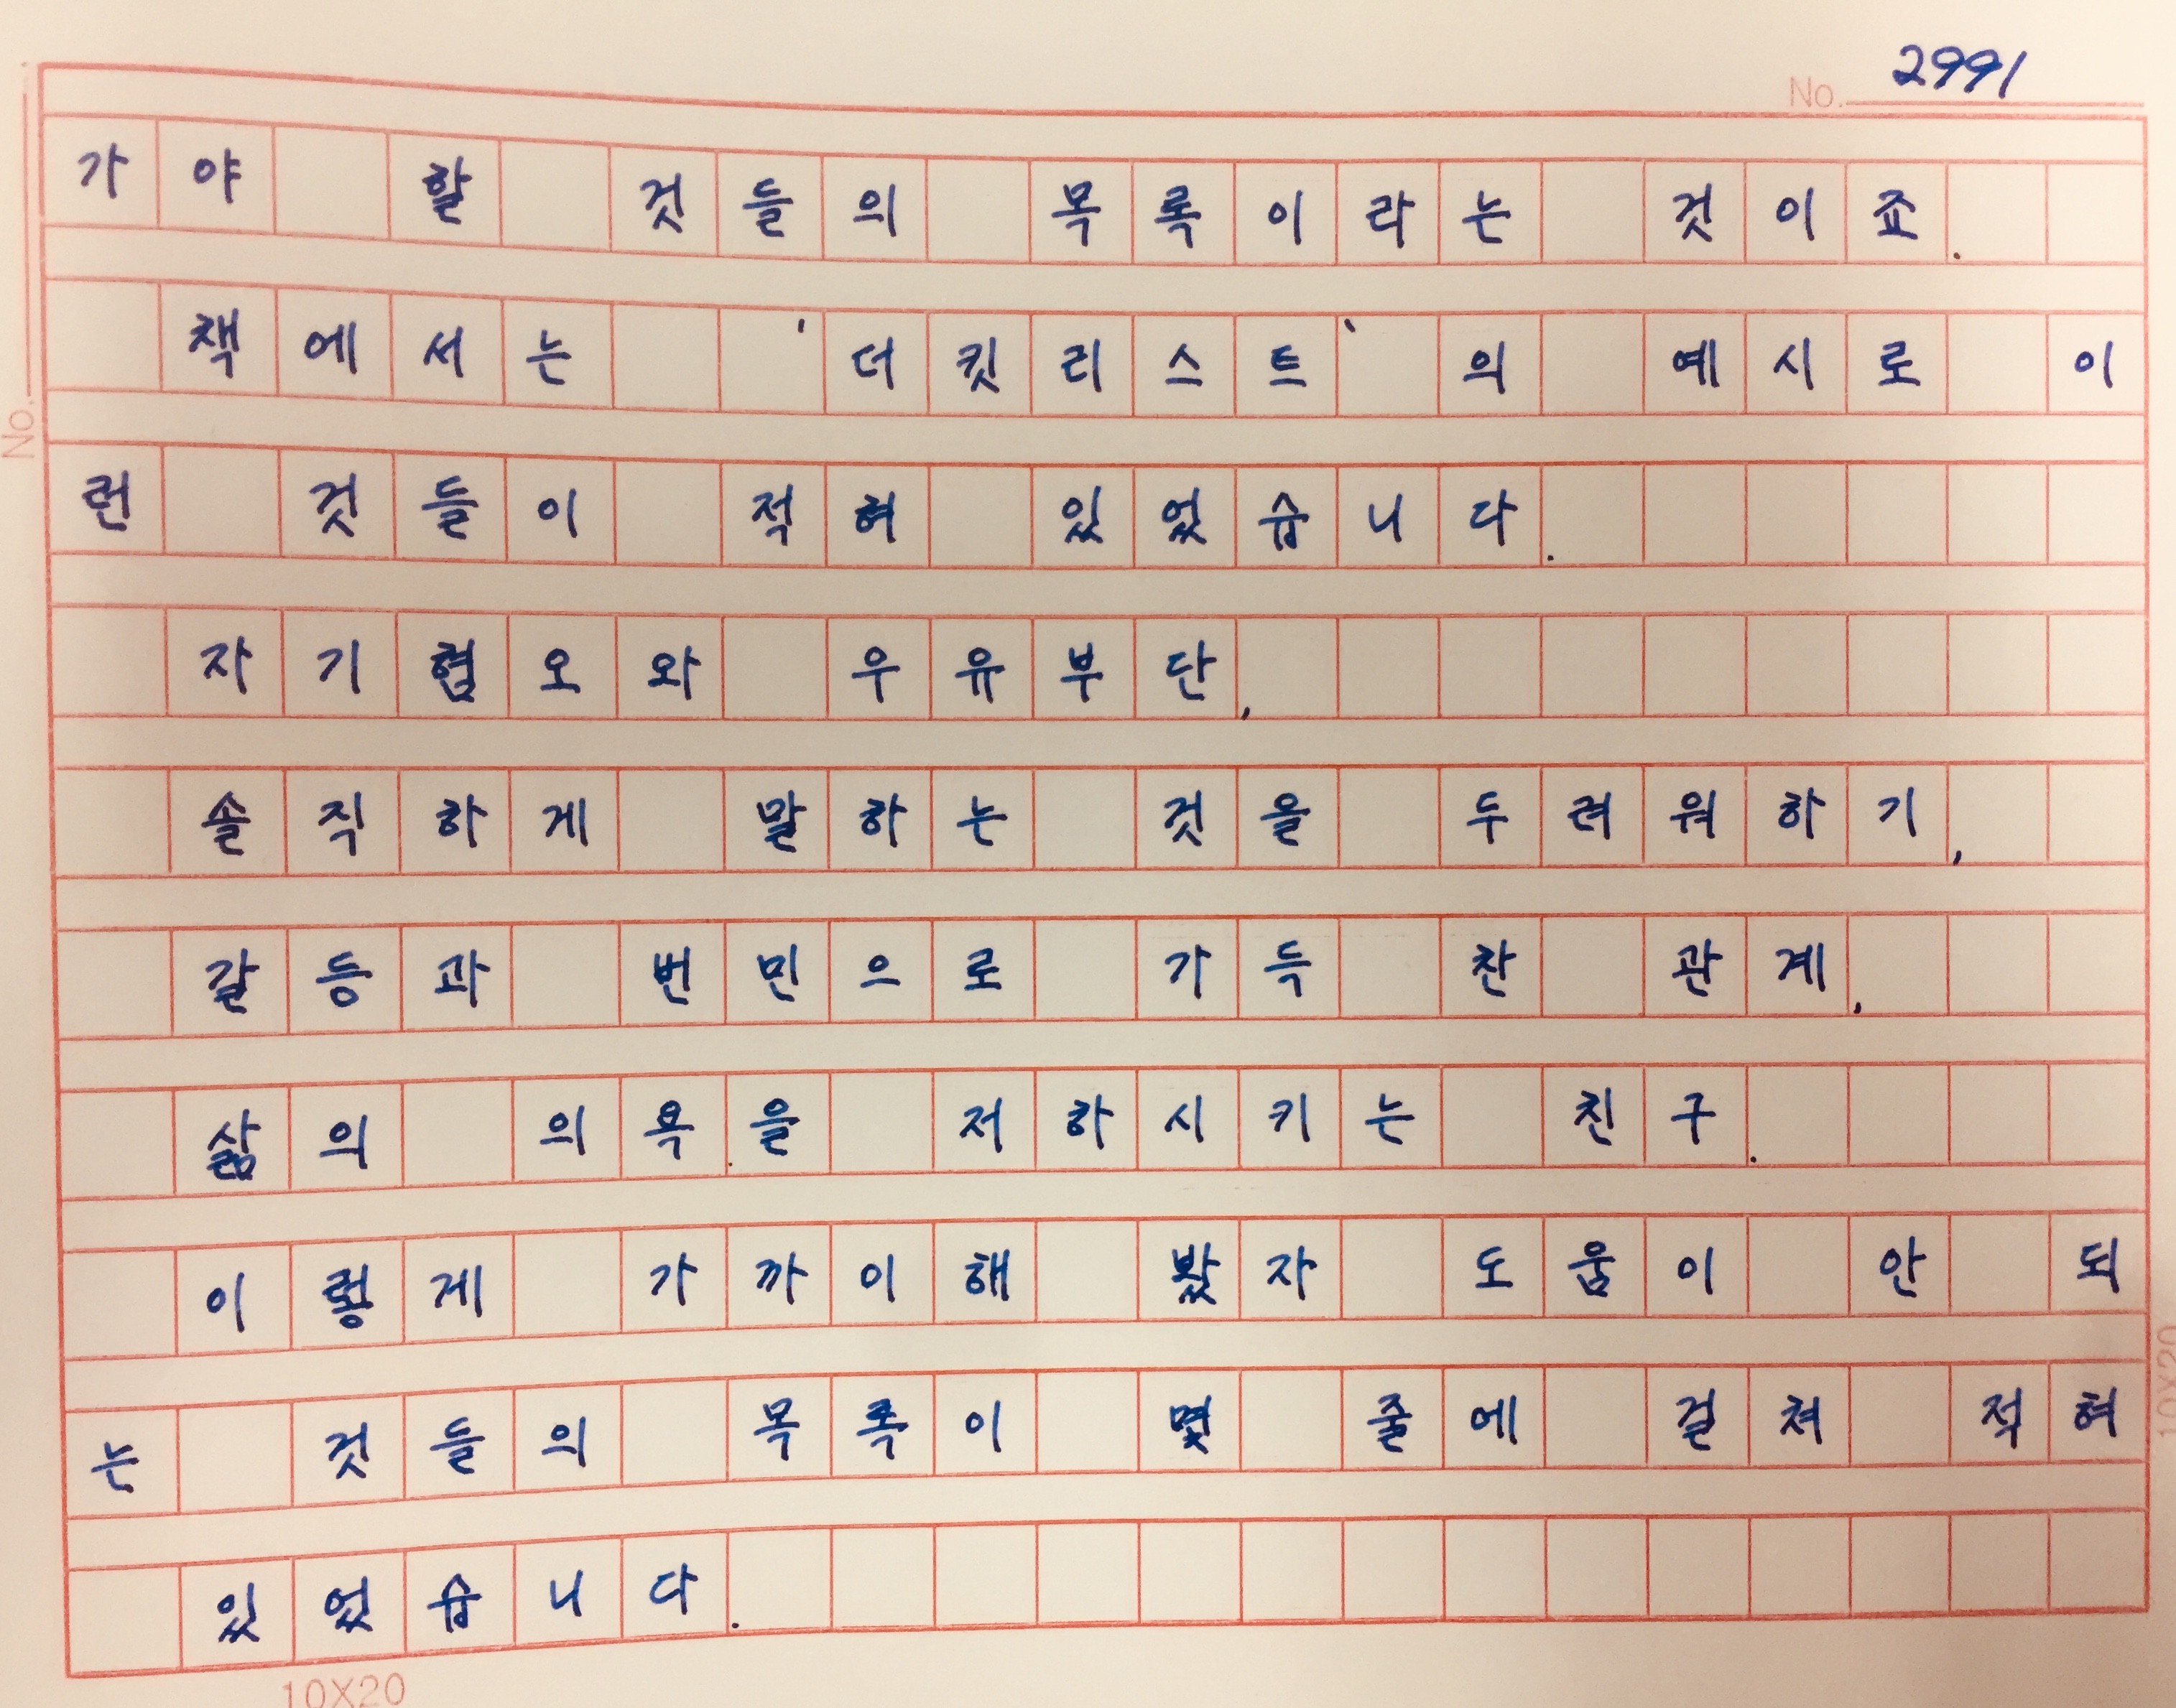 No. 2991
가야 할 것들의 목록이라는 것이죠.
책에서는 '더킷리스트'의 예시로 이
런 것들이 적혀 있었습니다.
자기혐오와 우유부단,
솔직하게 말하는 것을 두려워하기,
갈등과 번민으로 가득 찬 관계,
삶의 의욕을 저하시키는 친구.
이렇게 가까이해 봤자 도움이 안 되
는 것들의 목록이 몇 줄에 걸쳐 적혀
있었습니다.
10X20
No.
10X20